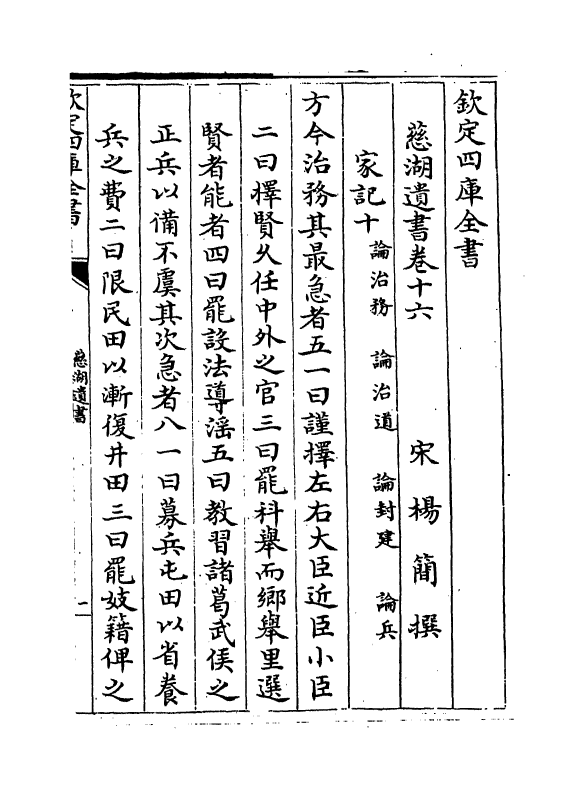 欽定四庫全書
慈湖遺書卷十六　宋　楊簡　撰
家記十　論治務　論治道　論封建　論兵
方今治務其最急者五一曰謹擇左右大臣近臣小臣
二曰擇賢久任中外之官三曰罷科舉而鄉舉里選
賢者能者四曰罷設法導淫五曰教習諸葛武侯之
正兵以備不虞其次急者八一曰募兵屯田以省養
兵之費二曰限民田以漸復井田三曰罷妓籍俾之
欽定四庫全書
慈湖遺書
一